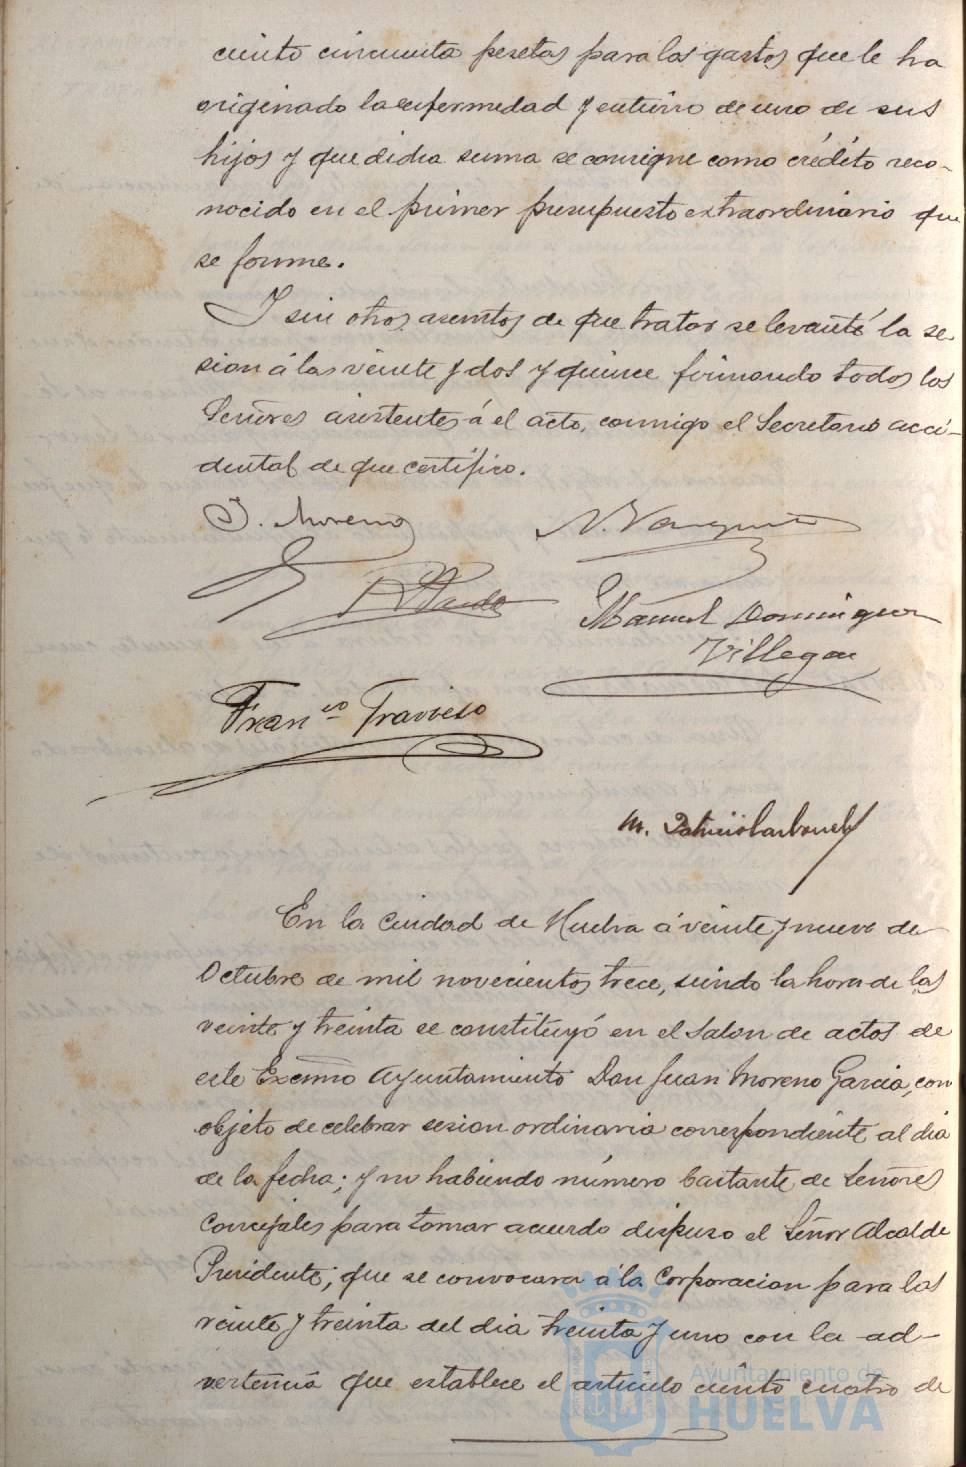 ciento cincuenta pesetas para los gastos que le ha
originado la enfermedad y entierro de uno de sus
hijos y que dicha suma se consigne como crédito reco-
nocido en el primer presupuesto extraordinario que
se forme.
Y sin otros asuntos de que tratar se levantó la se
sion á las veinte y dos y quince firmando todos los
Señores asistentes á el acto, conmigo el Secretario acci-
dental de que certifico.
J. Moreno
N. Vazquez
Manuel Dominguez
Villegas
Franco Travieso
M. Patricio Carbonell
En la Ciudad de Huelva á veinte y nueve de
Octubre de mil novecientos trece, siendo la hora de las
veinte y treinta se constituyó en el Salon de actos de
este Excmo Ayuntamiento Don Juan Moreno Garcia, con
objeto de celebrar sesion ordinaria correspondiente al dia
de la fecha; y no habiendo número bastante de Señores
Concejales para tomar acuerdo dispuso el Señor Alcalde
Presidente; que se convocara á la Corporacion para las
veinte y treinta del dia treinta y uno con la ad-
vertencia que establece el articulo ciento cuatro de
Ayuntamiento de
HUELVA